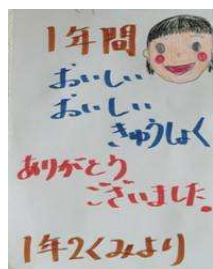 1年間
おいしい
おいしい
きゅうしょく
ありがとう
ございました。
1年2くみより